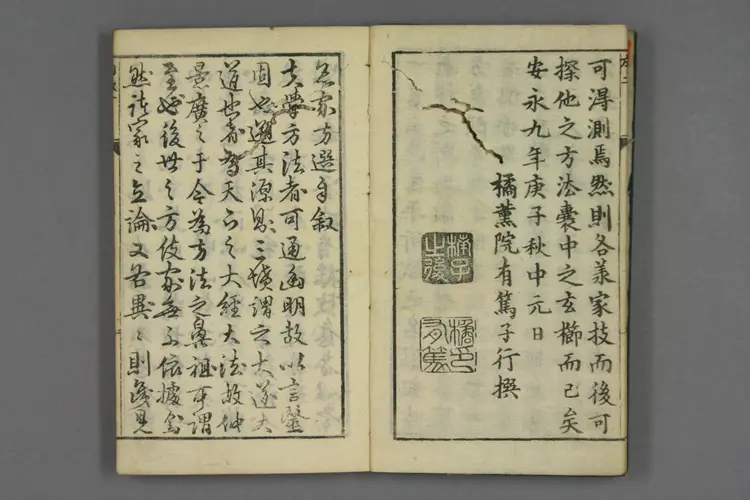 可得測焉然則各業家技而後可
探他之方法嚢中之玄櫛而已矣
安永九年庚子秋中元日
橘薫院有篤子行撰
橘印有篤
名家方選自叙
夫學方法者可通幽明故以言鑿
固也遡其源則三墳謂之大道大
道也者為天下之大經大法故
景廣之于今為方法之鼻祖可謂
至也後世之方伎家無不依據
然諸家之立論又各異々則淺見